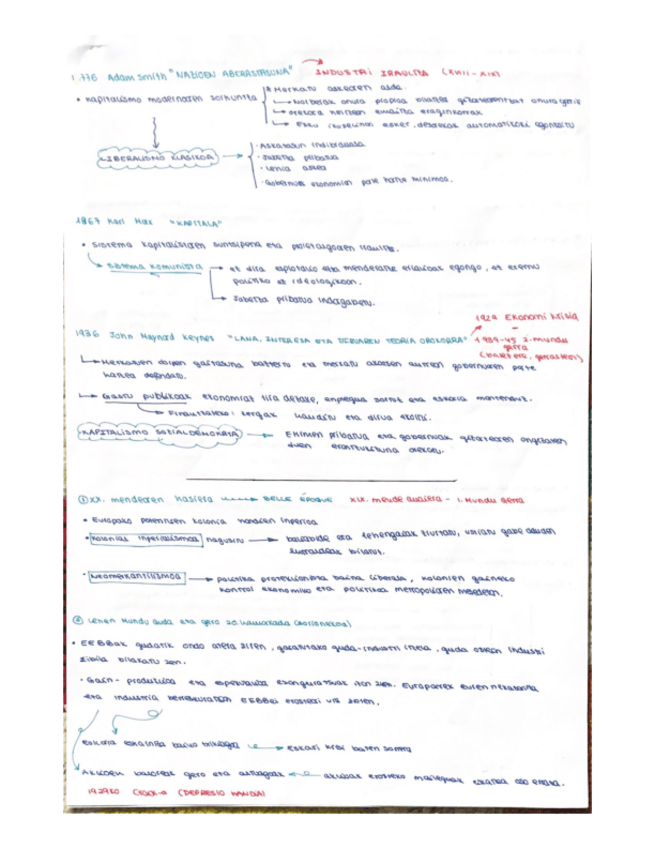 1.776 Adam Smith "NAZIOEN ABERASTASUNA" → INDUSTRI IRAULTZA (XVIII - XIX)
• Kapitalismo modernoaren sorkuntza
* Merkatu askearen aldia.
→ Norberak onura propioa bilatzea gizartearentzat onuragarria
→ eraginkorrak
→ Esku ikusezinari esker, desorekak automatikoki egonkortu
LIBERALISMO KLASIKOA →
· Askatasun indibiduala
· Jabetza pribatua
· Lehia askea
· Gobernuak ekonomian parte hartze minimoa.
1867 Karl Max "KAPITALA"
• Sistema kapitalistaren suntsipena eta proletalgoaren iraultza.
Sistema komunista → ez dira esplotazio eta menderatze erlazioak egongo, ez eremu
politiko ez ideologikoan.
→ Jabetza pribatua indargabetu.
1929 Ekonomi krisia
1936 John Maynard Keynes "LANA, INTERESA ETA DIRUAREN TEORIA OROKORRA"
1939-45 2. mundu
gerra
→ Merkatuen doipen gaitasuna baztertu eta merkatu akatsen aurrean gobernuaren parte
hartzea defendatu.
→ Gastu publikoak ekonomiaz tira dezake, enplegua sortuz eta eskaria mantenduz.
→ Finantzatzeko: zergak handitu eta dirua
KAPITALISMO SOZIALDEMOKRATA → Ekimen pribatua eta gobernuak gizartearen ongizatea
duen
① XX. mendearen hasiera → BELLE ÉPOQUE XIX. mende amaiera - 1. Mundu Gerra
• Europako potentzien kolonia handien inperioa
• Kolonias inperialismoa nagusitu → baliabide eta lehengaiak ziurtatu, ustiatu gabe dauden
lurraldeak bilatuz.
· Neomerkantilismoa → politika protekzionista baina liberala, kolonien gaineko
kontrol ekonomiko eta politikoa metropoliaren mesedetan.
② Lehen Mundu Guda eta gero 20. hamarkada (zorionekoa)
• EEBBak gudatik ondo atera ziren, garatutako guda-industri izatea, guda ostean industri
zibila bilakatu zen.
· Gain-produkzioa eta espekulazio izan zen. Europarrek euren nekazaritza
eta industria berreskuratzean EEBBei erosteari utzi zioten.
eskaria eskaintza baino txikiagoa → eskari krisi baten sorrera
Akzioen balioak gero eta altuagoak akzioak erosteko maileguak eskatzea oso erraza.
1929KO CRACK-A (DEPRESIO HANDIA)